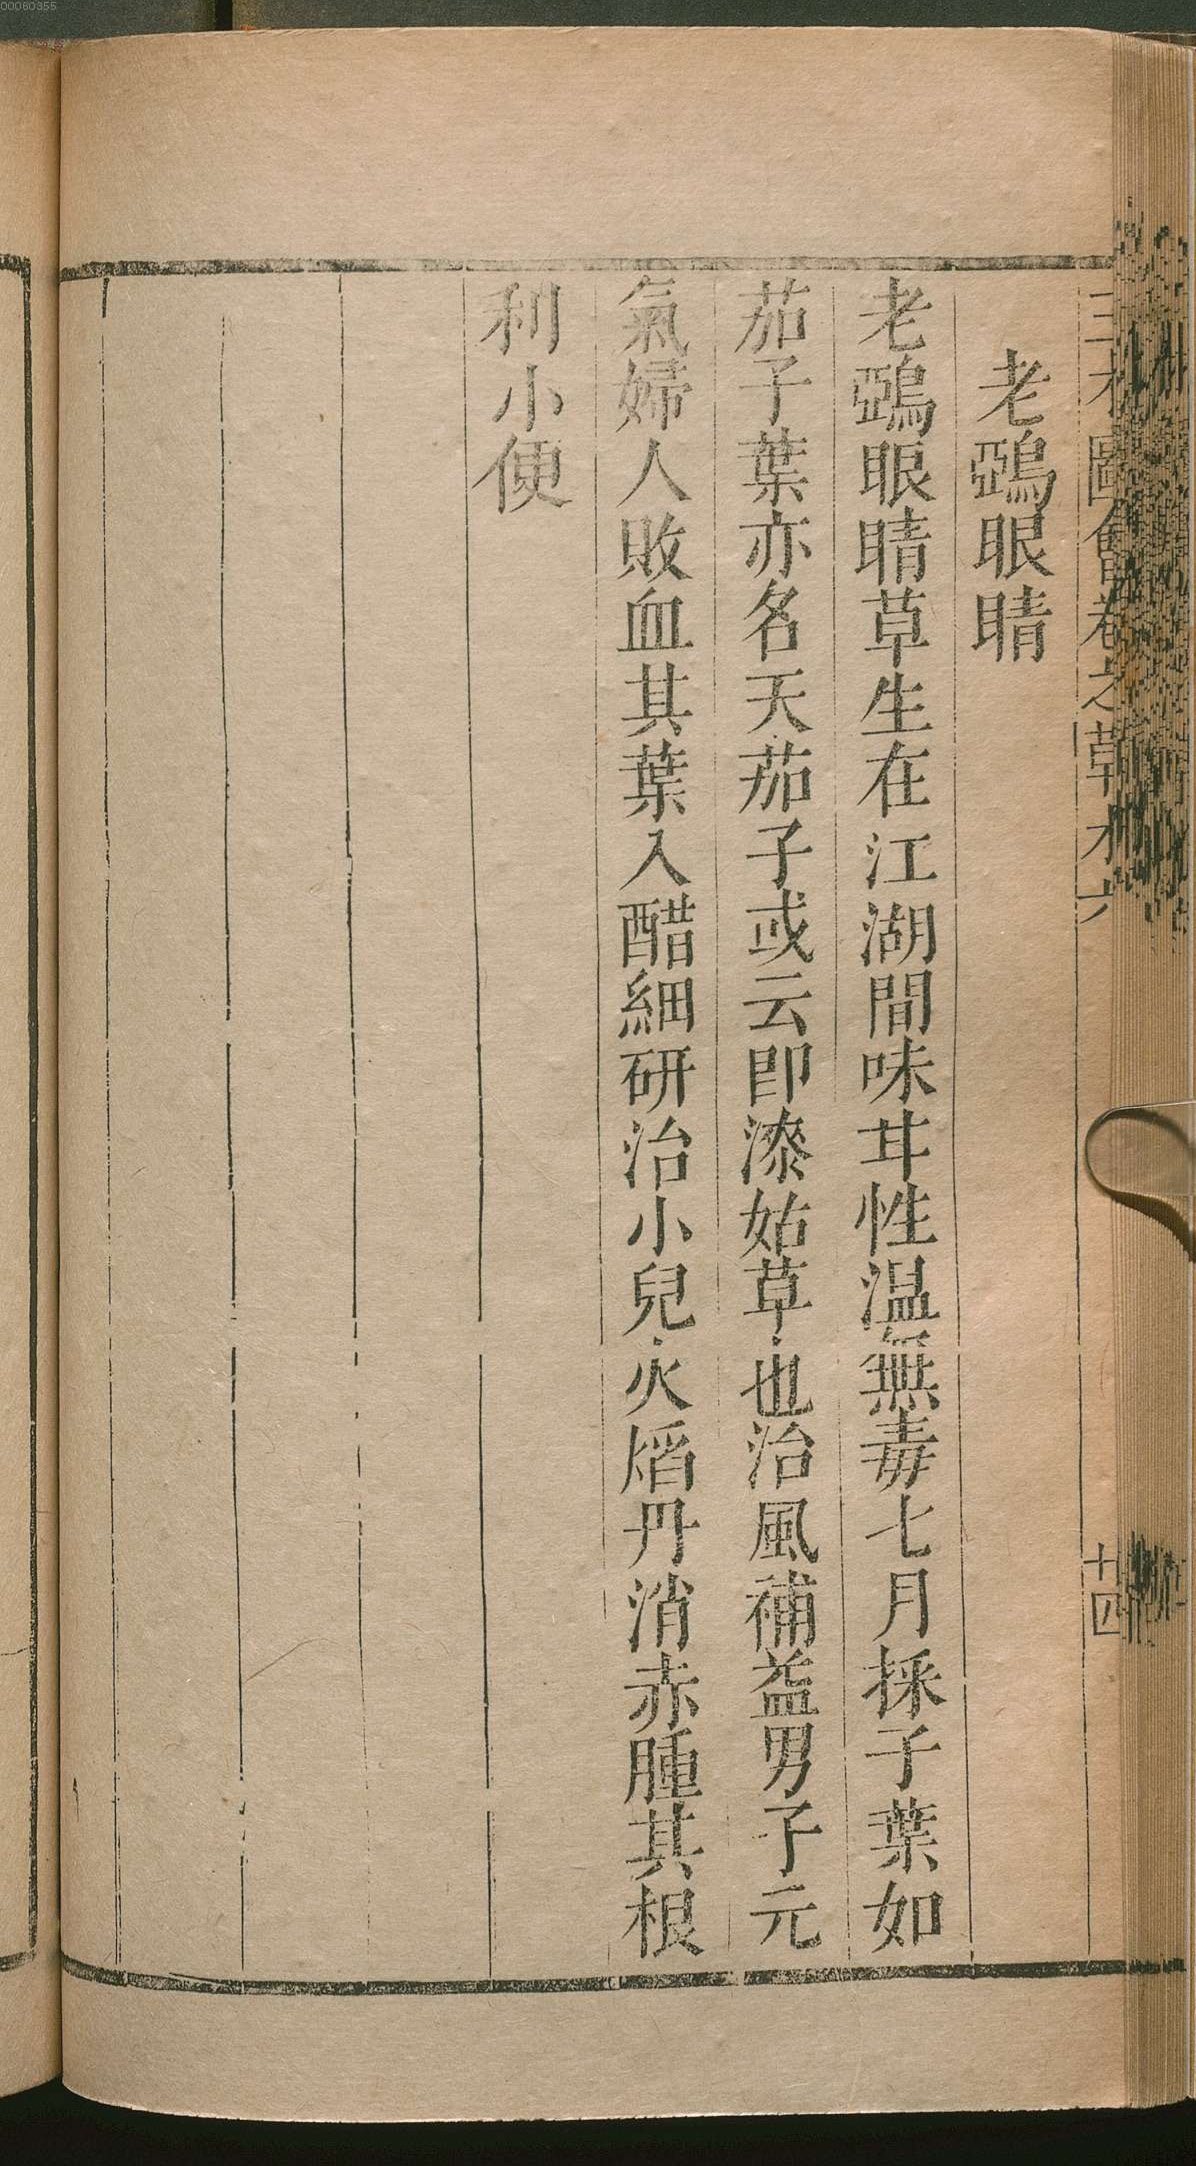 00060355
三才圖會卷之草木六
十四
老鵶眼睛
老鵶眼睛草生在江湖間味甘性温無毒七月採子葉如
茄子葉亦名天茄子或云即漆姑草也治風補益男子元
氣婦人敗血其葉入醋細研治小兒火熖丹消赤腫其根
利小便